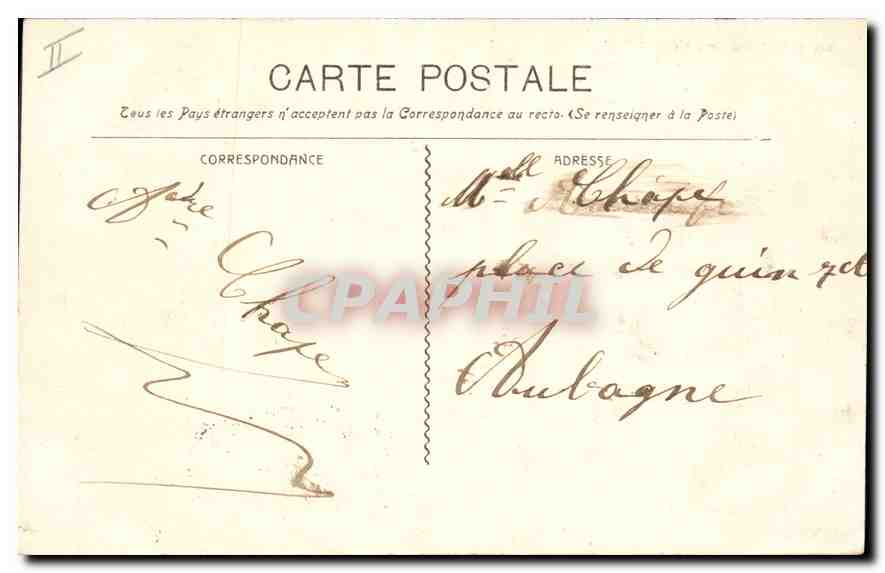 II
CARTE POSTALE
Tous les Pays étrangers n'acceptent pas la Correspondance au recto. (Se renseigner à la Poste)
CORRESPONDANCE
Chape
ADRESSE
Melle Chape
place de guin
Aubagne
CPAPHIL